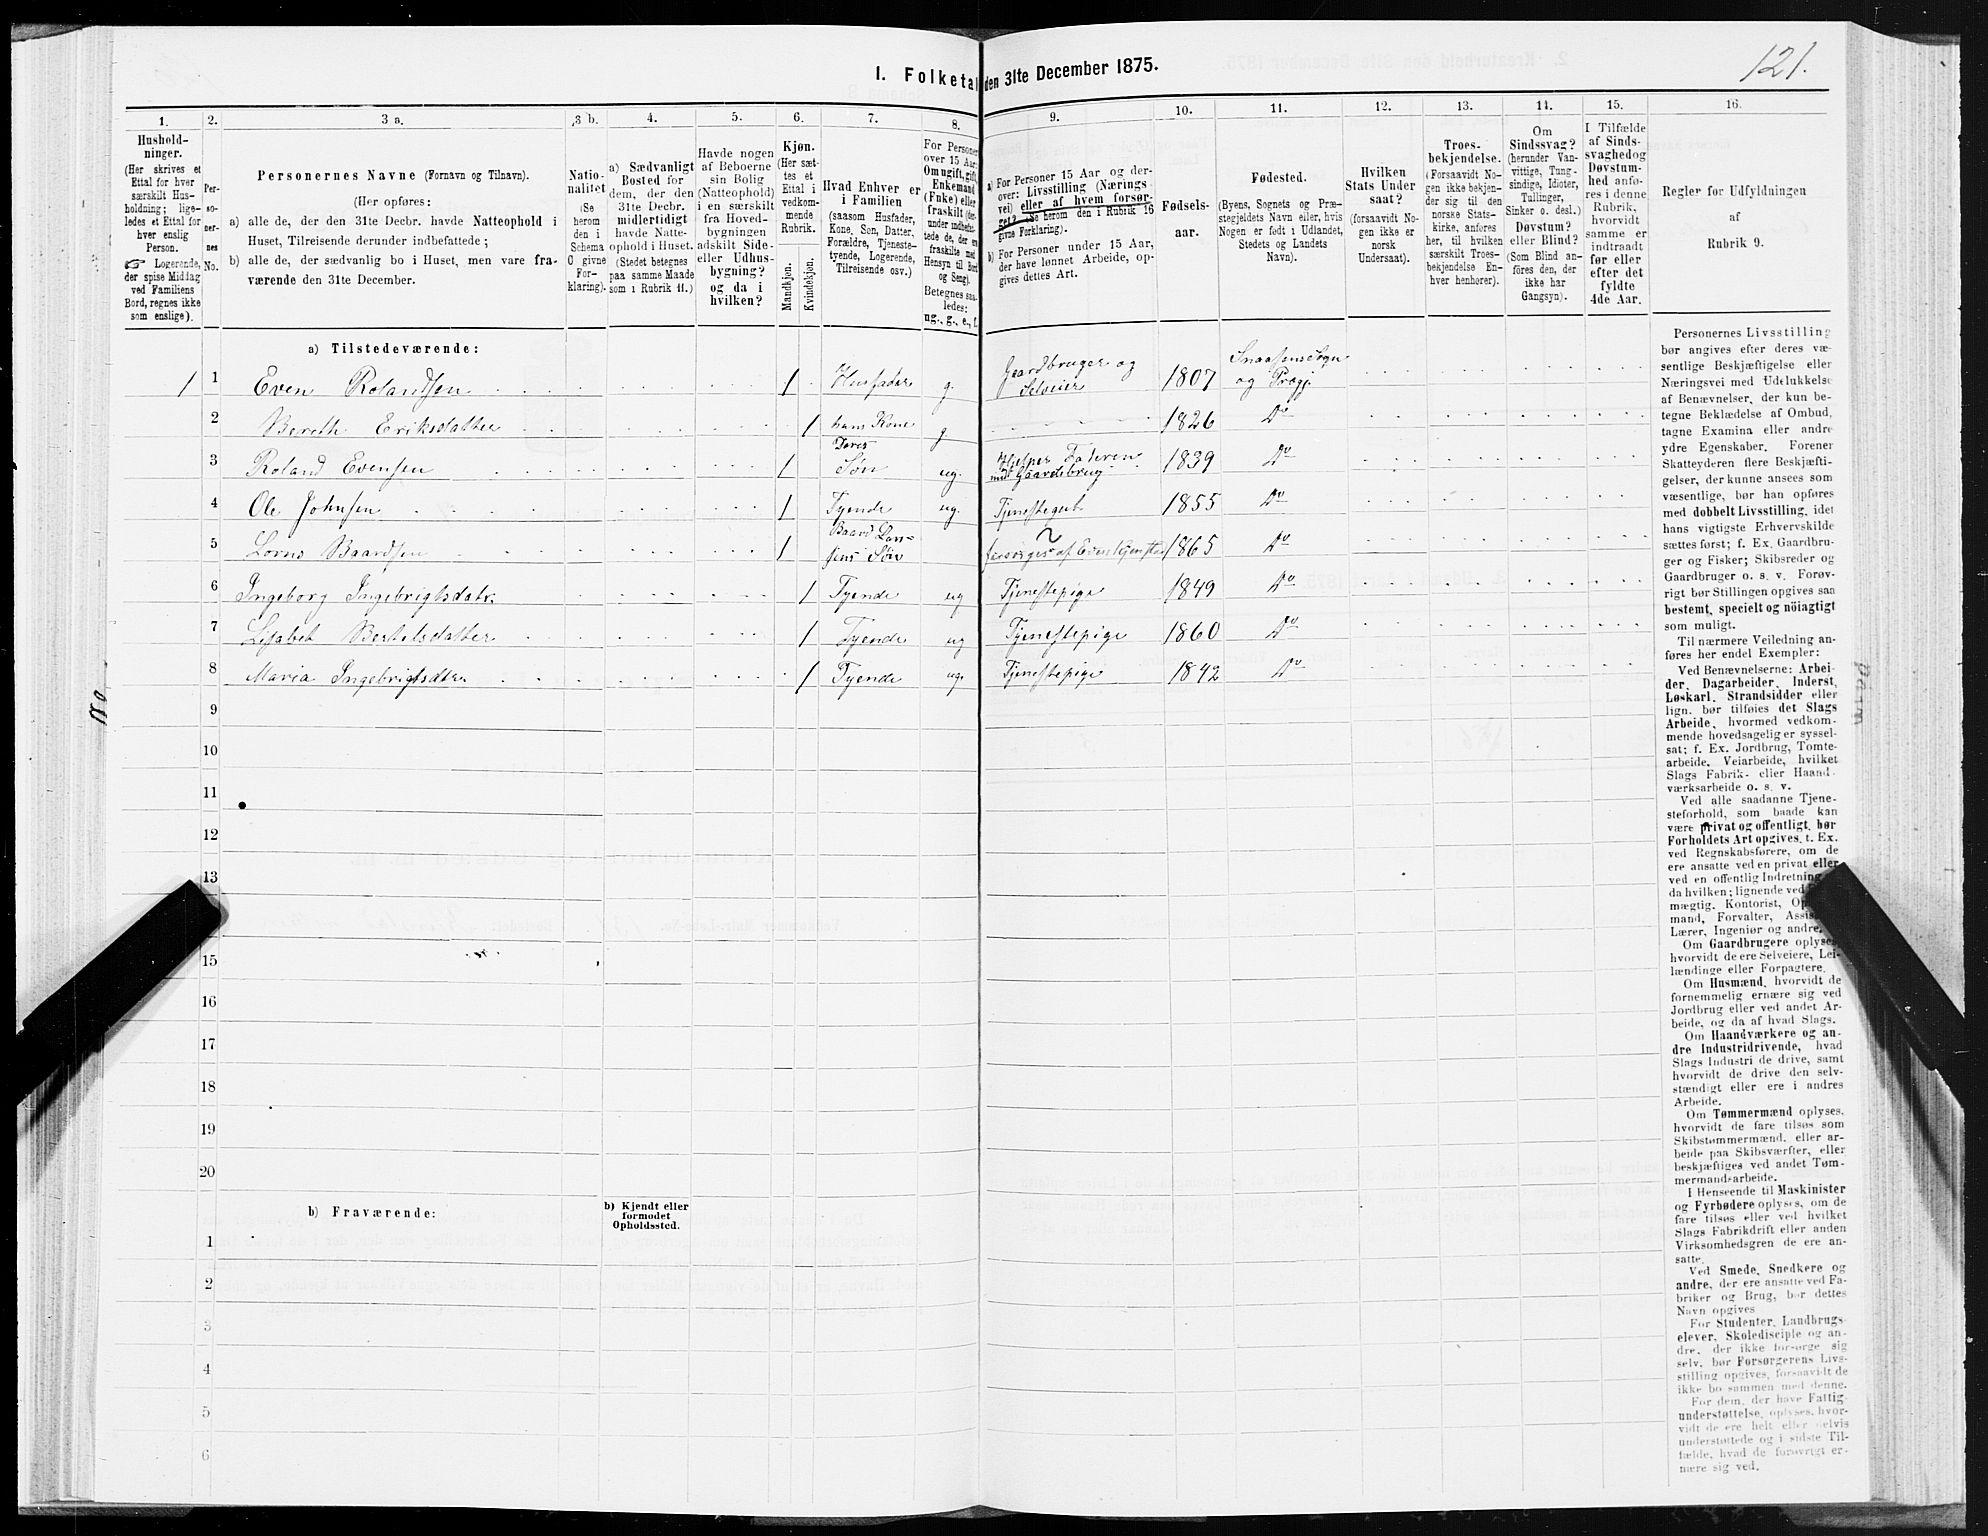 121.
I. Folketal den 31te December 1875.
1. 2. 3 a. 3 b. 4. 5. 6. 7. 8. 9. 10. 11. 12. 13. 14. 15. 16.
Hushold-
ninger.
(Her skrives et
Ettal for hver
særskilt Hus-
holdning; lige-
ledes et Ettal for
hver enslig
Person.
☞ Logerende,
der spise Middag
ved Familiens
Bord, regnes ikke
som enslige).
Per-
so-
ner-
nes
No.
Personernes Navne (Fornavn og Tilnavn).
(Her opføres:
a) alle de, der den 31te Decbr. havde Natteophold i
Huset, Tilreisende derunder indbefattede;
b) alle de, der sædvanlig bo i Huset, men vare fra-
værende den 31te December.
Natio-
nalitet
(Se
herom
den i
Schema
C givne
For-
klaring).
a) Sædvanligt
Bosted for
dem, der den
31te Decbr.
midlertidigt
havde Natte-
ophold i Huset.
(Stedet betegnes
paa samme Maade
som i Rubrik 11.)
Havde nogen
af Beboerne
sin Bolig
(Natteophold)
i en særskilt
fra Hoved-
bygningen
adskilt Side-
eller Udhus-
bygning?
og da i
hvilken?
Kjøn.
(Her sæt-
tes et
Ettal i
vedkom-
mende
Rubrik.
Mandkjøn.
Kvindekjøn.
Hvad Enhver er
i Familien
(saasom Husfader,
Kone, Søn, Datter,
Forældre, Tjeneste-
tyende, Logerende,
Tilreisende osv.)
For Personer
over 15 Aar:
Om ugift, gift,
Enkemand
(Enke) eller
fraskilt (der-
under indbefat-
tede de, der ere
fraskilte med
Hensyn til Bord
og Seng).
Betegnes saa-
ledes:
ug., g., e., f.
a) For Personer 15 Aar og der-
over: Livsstilling (Nærings-
vei) eller af hvem forsør-
get? (Se herom den i Rubrik 16
givne Forklaring).
b) For Personer under 15 Aar,
der have lønnet Arbeide, op-
gives dettes Art.
Fødsels-
aar.
Fødested.
(Byens, Sognets og Præ-
stegjeldets Navn eller, hvis
Nogen er født i Udlandet,
Stedets og Landets
Navn).
Hvilken
Stats Under-
saat?
(forsaavidt No-
gen ikke er
norsk
Undersaat).
Troes-
bekjendelse.
(Forsaavidt No-
gen ikke bekjen-
der sig til den
norske Stats-
kirke, anføres
her, til hvilken
særskilt Troes-
bekjendelse En-
hver henhører).
Om
Sindssvag?
(herunder Van-
vittige, Tung-
sindige, Idioter,
Sinker o. desl.)
Døvstum?
eller Blind?
(Som Blind an-
føres den, der
ikke har
Gangsyn).
I Tilfælde
af Sinds-
svaghed og
Døvstum-
hed anfø-
res i denne
Rubrik,
hvorvidt
samme er
indtraadt
før eller
efter det
fyldte
4de Aar.
Regler for Udfyldningen
af
Rubrik 9.
a) Tilstedeværende:
1 1 Even Rolandsen 1 Husfader g. Gaardbruger og Selveier 1807 Snaasens Sogn og Prægj.
2 Bereth Eriksdatter 1 hans Kone g 1826 Do
3 Roland Evensen 1 Deres Søn ug. Hjelper Faderen med Gaardsbrug 1839 Do
4 Ole Johnsen 1 Tyende ug. Tjenestegut 1855 Do
5 Lorns Baardsen 1 Baard Lornsens Søn forsørges af Even 1865 Do
6 Ingeborg Ingebrigtsdatr. 1 Tyende ug Tjenestepige 1849 Do
7 Lisabet Bertelsdatter 1 Tyende ug Tjenestepige 1860 Do
8 Maria Ingebrigtsdtr 1 Tyende ug. Tjenestepige 1842 Do
9
10
11
12
13
15
16
17
18
19
20
b) Fraværende:
b) Kjendt eller
formodet
Opholdssted.
1
2
3
4
5
6
Personernes Livsstilling
bør angives efter deres væ-
sentlige Beskjæftigelse eller
Næringsvei med Udelukkelse
af Benævnelser, der kun be-
tegne Beklædelse af Ombud,
tagne Examina eller andre
ydre Egenskaber. Forener
Skatteyderen flere Beskjæfti-
gelser, der kunne ansees som
væsentlige, bør han opføres
med dobbelt Livsstilling, idet
hans vigtigste Erhvervskilde
sættes først; f. Ex. Gaardbru-
ger og Fisker; Skibsreder og
Gaardbruger o. s. v. Forøv-
rigt bør Stillingen opgives saa
bestemt, specielt og nöiagtigt
som muligt.
Til nærmere Veiledning an-
føres her endel Exempler:
Ved Benævnelserne: Arbei-
der, Dagarbeider, Inderst,
Løskarl, Strandsidder eller
lign. bør tilføies det Slags
Arbeide, hvormed vedkom-
mende hovedsagelig er syssel-
sat; f. Ex. Jordbrug, Tomte-
arbeide, Veiarbeide, hvilket
Slags Fabrik- eller Haand-
værksarbeide o. s. v.
Ved alle saadanne Tjene-
steforhold, som baade kan
være privat og offentligt, bør
Forholdets Art opgives, t. Ex.
ved Regnskabsførere, om de
ere ansatte ved en privat eller
ved en offentlig Indretning
da hvilken; lignende ved
mægtig, Kontorist, Op
mand, Forvalter, Assis
Lærer, Ingeniør og andre.
Om Gaardbrugere oplyses,
hvorvidt de ere Selveiere, Lei-
lændinge eller Forpagtere.
Om Husmænd, hvorvidt de
fornemmelig ernære sig ved
Jordbrug eller ved andet Ar-
beide, og da af hvad Slags.
Om Haandværkere og an-
dre Industridrivende, hvad
Slags Industri de drive, samt
hvorvidt de drive den selv-
stændigt eller ere i andres
Arbeide.
Om Tømmermænd oplyses,
hvorvidt de fare tilsøs som
Skibstømmermænd, eller ar-
beide paa Skibsværfter, eller
beskjæftiges ved andet Tøm-
mermandsarbeide.
I Henseende til Maskinister
og Fyrbødere oplyses, om de
fare tilsøs eller ved hvilket
Slags Fabrikdrift eller anden
Virksomhedsgren de ere an-
satte.
Ved Smede, Snedkere og
andre, der ere ansatte ved Fa-
briker og Brug, bør dettes
Navn opgives
For Studenter, Landbrugs-
elever, Skoledisciple og an-
dre, der ikke forsørge sig
selv, bør Forsørgerens Livs-
stilling opgives, forsaavidt de
ikke bo sammen med denne.
For dem, der have Fattig-
understøttelse, oplyses, hvor-
vidt de ere helt eller delvis
understøttede og i sidste Til-
fælde, hvad de forøvrigt er-
nære sig ved.